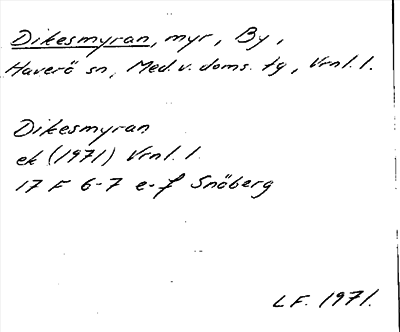 Dikesmyran, myr, By,
Haverö sn, Med. v. doms. tg, Vrnl. l.
Dikesmyran
ek (1971) Vrnl. l.
17 F 6-7 e-f Snöberg
LF. 1971.